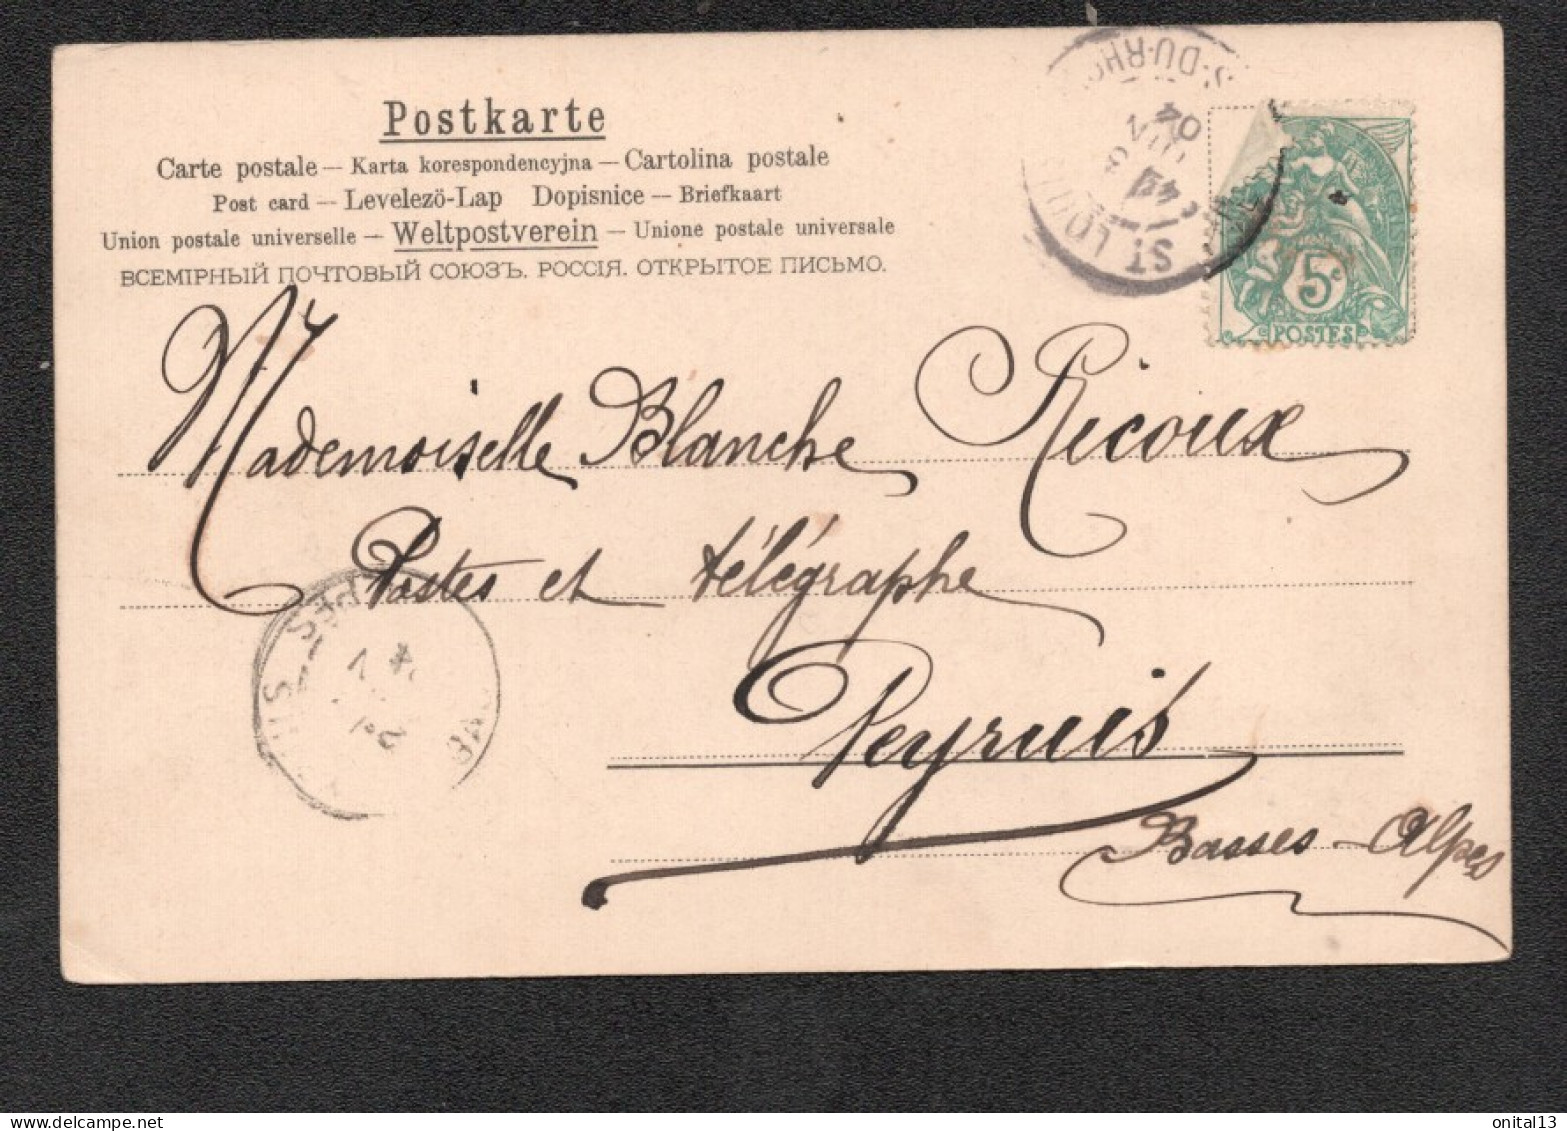 Postkarte
Carte postale – Karta korespondencyjna – Cartolina postale
Post card – Levelező-Lap Dopisnice – Briefkaart
Union postale universelle – Weltpostverein – Unione postale universale
ВСЕМІРНЫЙ ПОЧТОВЫЙ СОЮЗЪ. РОССІЯ. ОТКРЫТОЕ ПИСЬМО.
ST LOUI
DU-RHO
04
5c
POSTES
Mademoiselle Blanche Ricoux
Postes et télégraphe
Peyruis
Basses-Alpes
www.delcampe.net
onital13